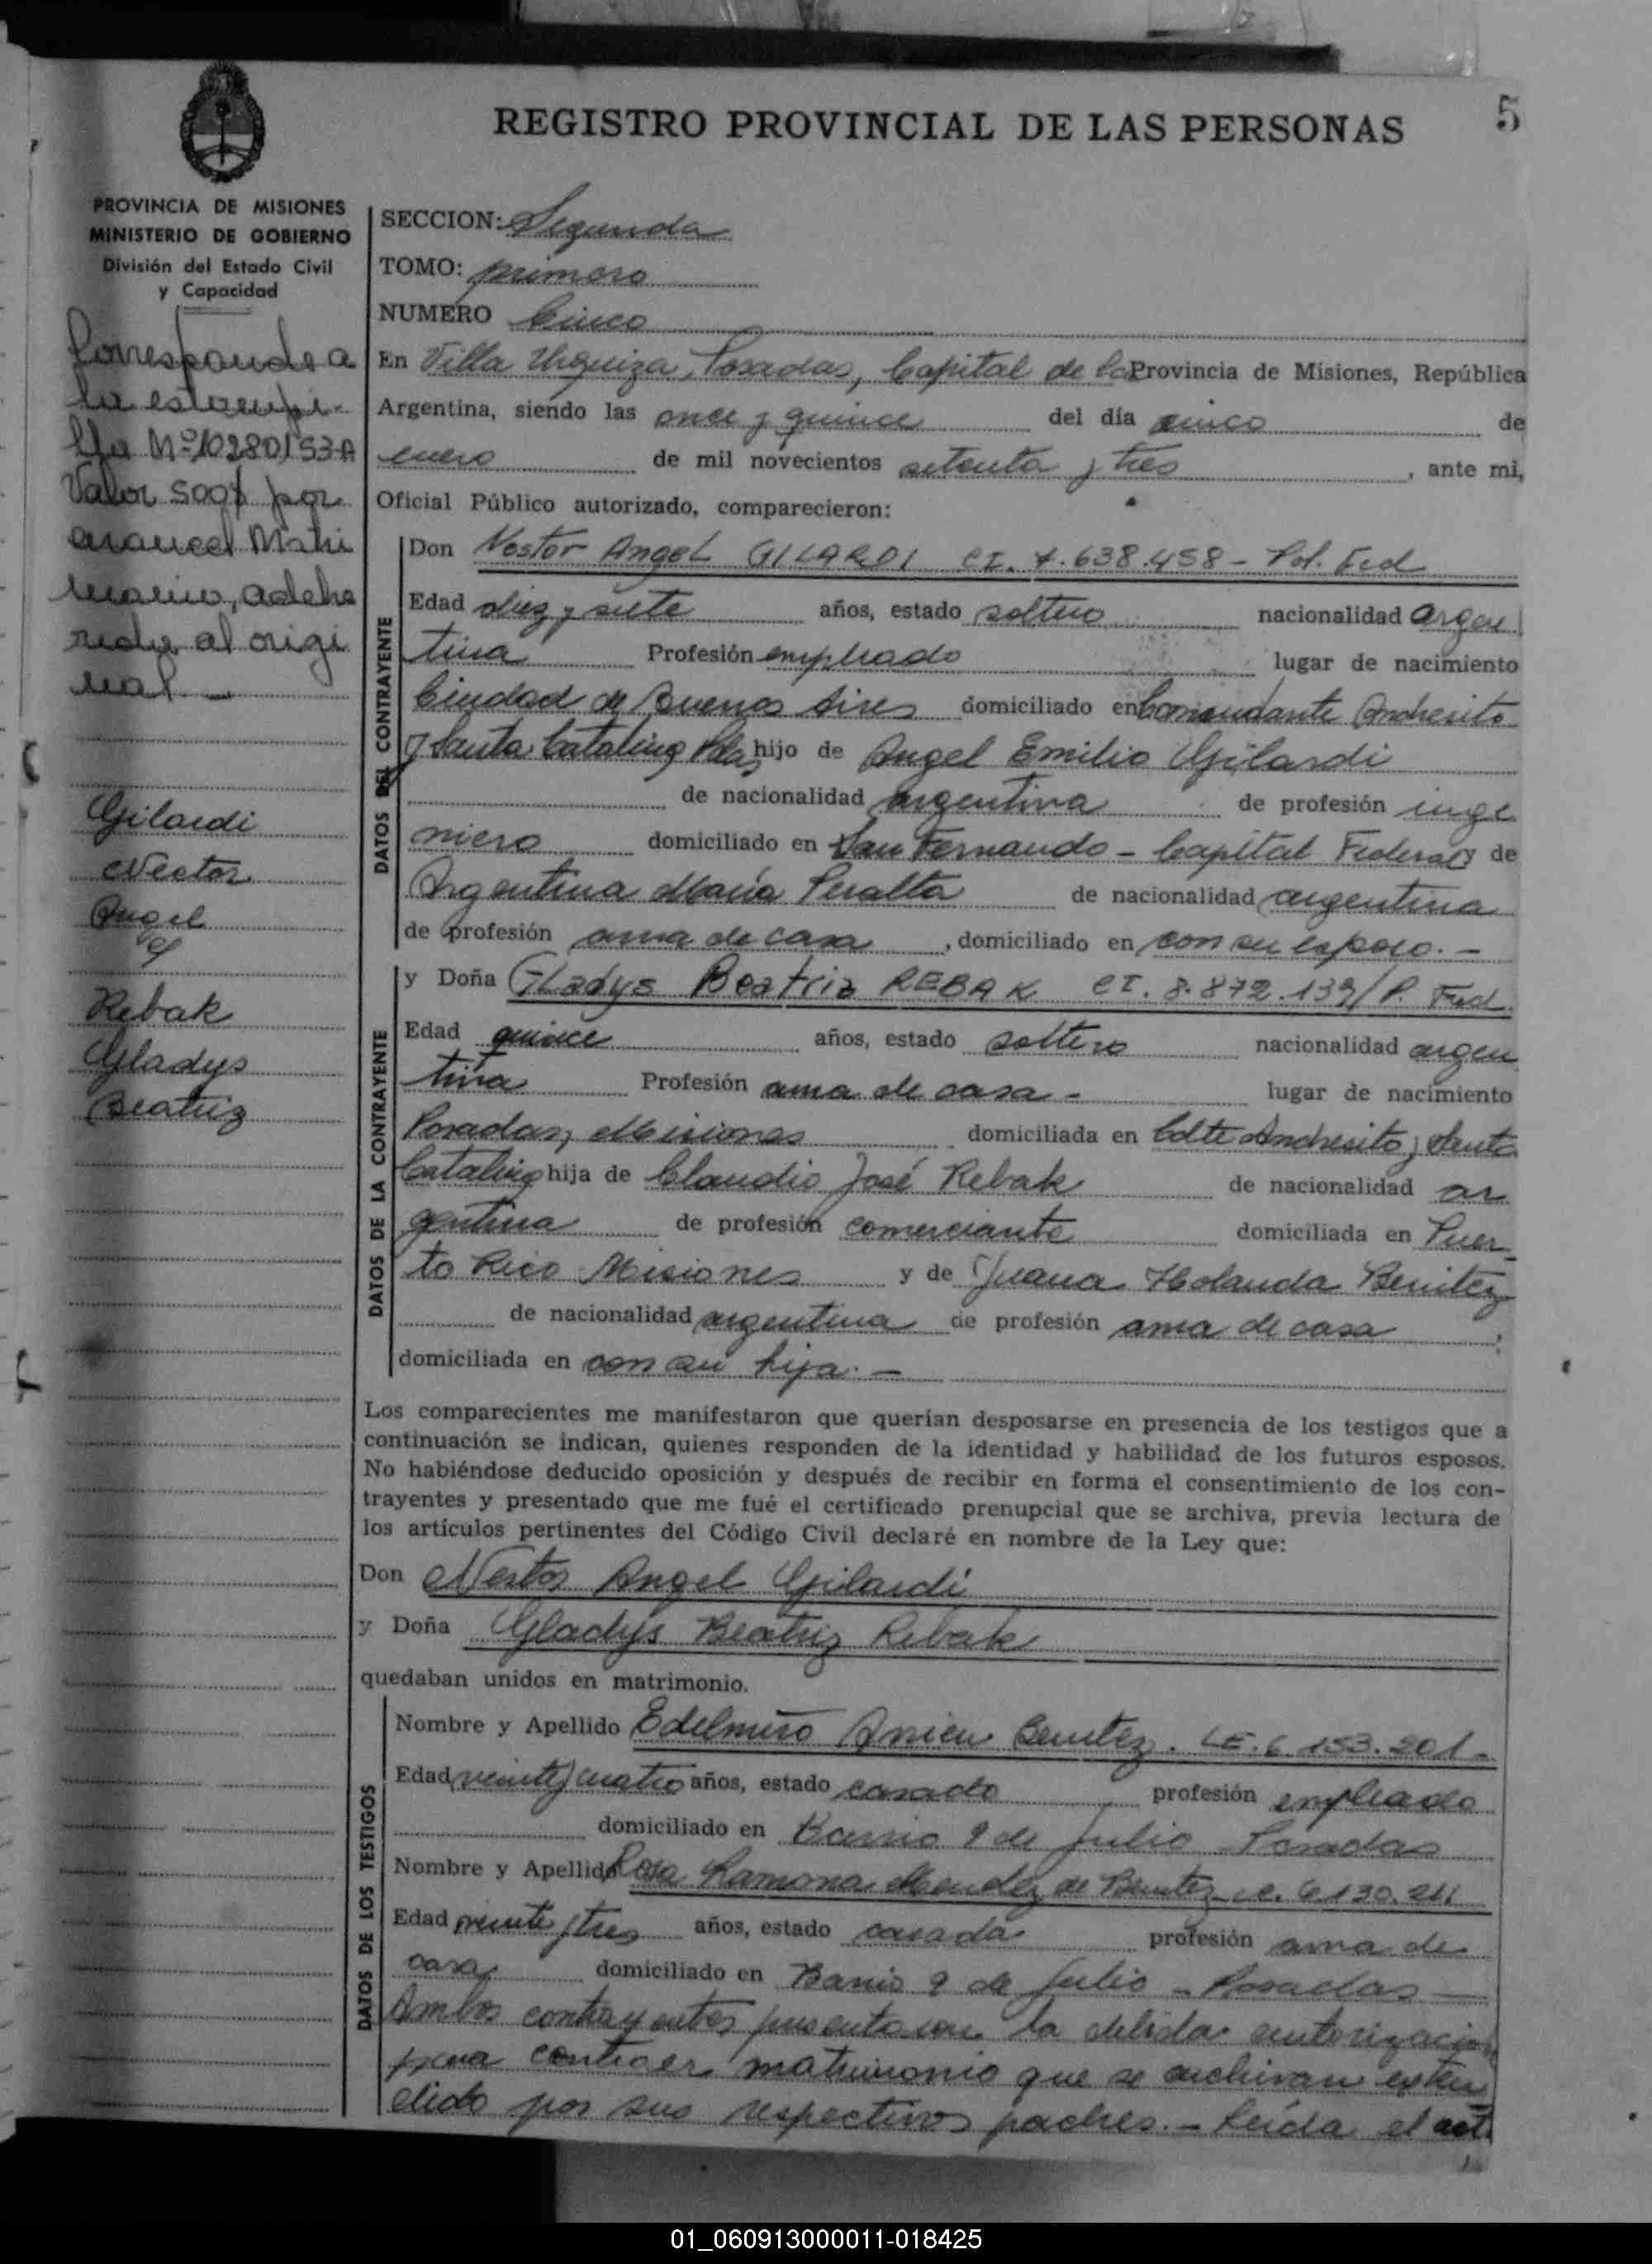 REGISTRO PROVINCIAL DE LAS PERSONAS
5
PROVINCIA DE MISIONES
MINISTERIO DE GOBIERNO
División del Estado Civil
y Capacidad
Corresponde a
la estampi-
lla Nº 10280153-A
Valor 500$ por
arancel Matri
monio, adhe
rida al origi
nal.-
Gilardi
Nestor
Angel
y
Rebak
Gladys
Beatriz
SECCION: Segunda
TOMO: primero
NUMERO Cinco
En Villa Urquiza, Posadas, Capital de la Provincia de Misiones, República
Argentina, siendo las once y quince del día cinco de
enero de mil novecientos setenta y tres, ante mi,
Oficial Público autorizado, comparecieron:
DATOS DEL CONTRAYENTE
Don Nestor Angel GILARDI CI. 7.638.458 - Pol. Fed
Edad diez y siete años, estado soltero nacionalidad argen
tina Profesión empleado lugar de nacimiento
Ciudad de Buenos Aires domiciliado en Comandante Andresito
y Santa Catalina hijo de Angel Emilio Gilardi
de nacionalidad argentina de profesión inge
niero domiciliado en San Fernando - Capital Federal y de
Argentina María Peralta de nacionalidad argentina
de profesión ama de casa, domiciliado en con su esposo.-
DATOS DE LA CONTRAYENTE
y Doña Gladys Beatriz REBAK CI. 8.872.139/P. Fed
Edad quince años, estado soltera nacionalidad argen
tina Profesión ama de casa - lugar de nacimiento
Posadas, Misiones domiciliada en Cdte Andresito y Santa
Catalina hija de Claudio José Rebak de nacionalidad ar
gentina de profesión comerciante domiciliada en Puer-
to Rico Misiones y de Juana Holanda Benitez
de nacionalidad argentina de profesión ama de casa,
domiciliada en con su hija.-
Los comparecientes me manifestaron que querían desposarse en presencia de los testigos que a
continuación se indican, quienes responden de la identidad y habilidad de los futuros esposos.
No habiéndose deducido oposición y después de recibir en forma el consentimiento de los con-
trayentes y presentado que me fué el certificado prenupcial que se archiva, previa lectura de
los artículos pertinentes del Código Civil declaré en nombre de la Ley que:
Don Nestor Angel Gilardi
y Doña Gladys Beatriz Rebak
quedaban unidos en matrimonio.
DATOS DE LOS TESTIGOS
Nombre y Apellido Edelmiro Benitez. LE. 6.153.201-
Edad veinte y cuatro años, estado casado profesión empleado
domiciliado en Barrio 9 de Julio - Posadas
Nombre y Apellido Rosa Ramona Mendez de Benitez
Edad veinte y tres años, estado casada profesión ama de
casa domiciliado en Barrio 9 de Julio - Posadas -
Ambos contrayentes presentaron la debida autorización
para contraer matrimonio que se archivan exten
dido por sus respectivos padres.- Leída el act
01_060913000011-018425